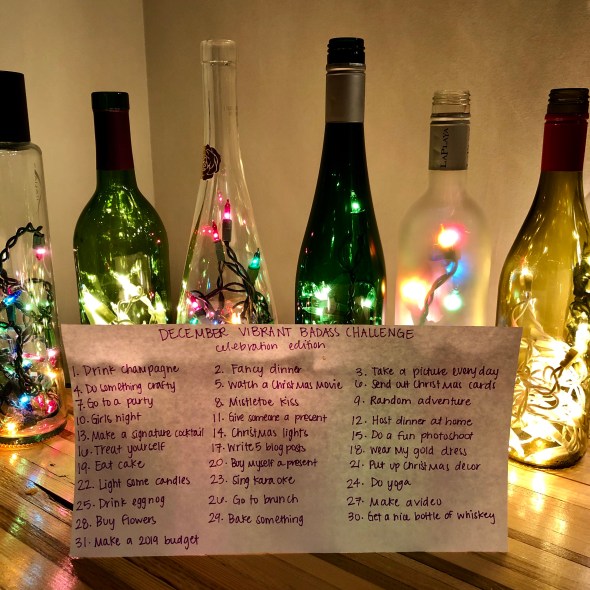 LAPLAYA
DECEMBER VIBRANT BADASS CHALLENGE
celebration edition
1. Drink champagne 2. Fancy dinner 3. Take a picture everyday
4. Do something crafty 5. Watch a Christmas movie 6. Send out Christmas cards
7. Go to a party 8. Mistletoe kiss 9. Random adventure
10. Girls night 11. Give someone a present 12. Host dinner at home
13. Make a signature cocktail 14. Christmas lights 15. Do a fun photoshoot
16. Treat yourself 17. Write 5 blog posts 18. Wear my gold dress
19. Eat cake 20. Buy myself a present 21. Put up Christmas decor
22. Light some candles 23. Sing karaoke 24. Do yoga
25. Drink eggnog 26. Go to brunch 27. Make a video
28. Buy flowers 29. Bake something 30. Get a nice bottle of whiskey
31. Make a 2019 budget